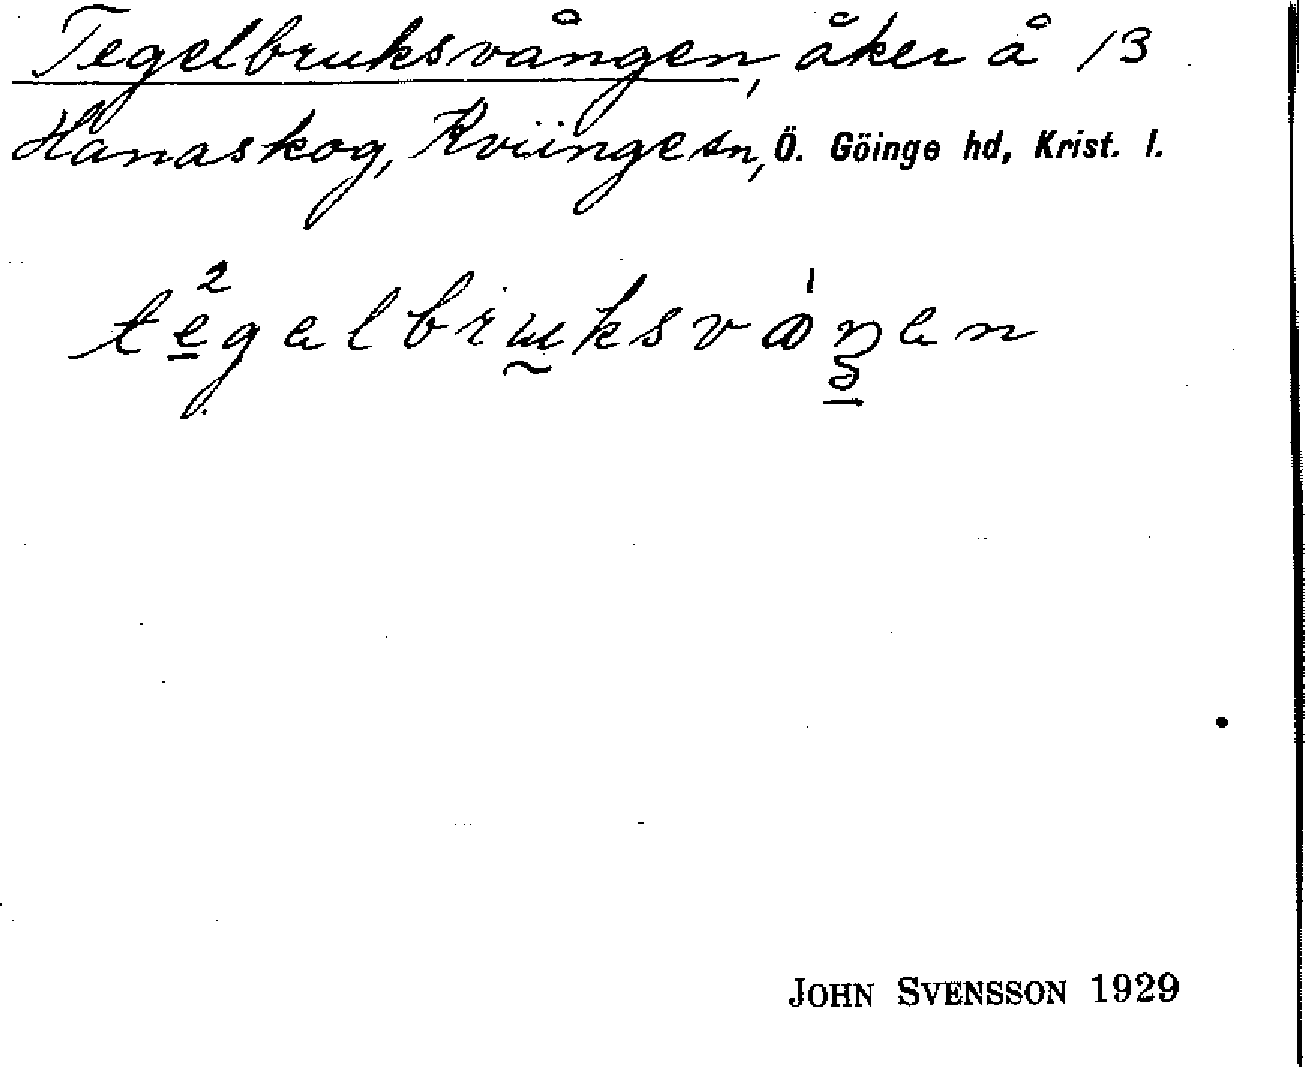 Tegelbruksvången, åker å 13
Hanaskog, Kviinge sn, Ö. Göinge hd, Krist. l.
tegalbruksvåŋen
JOHN SVENSSON 1929